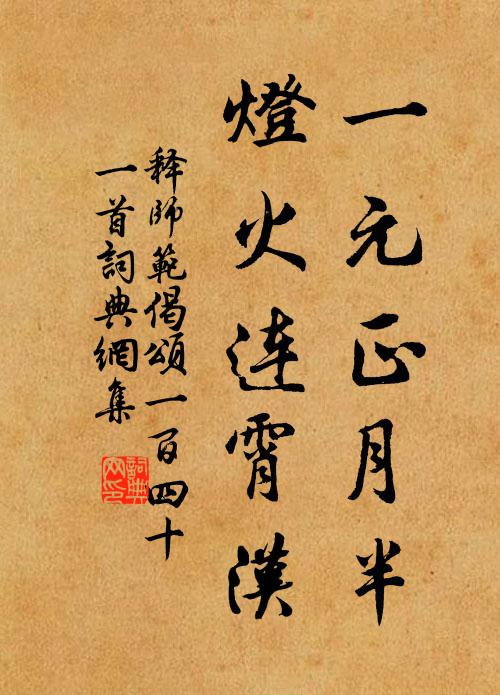 一元正月半
燈火連霄漢
释師範偈頌一百四十
一首詞典網集
詞典网印